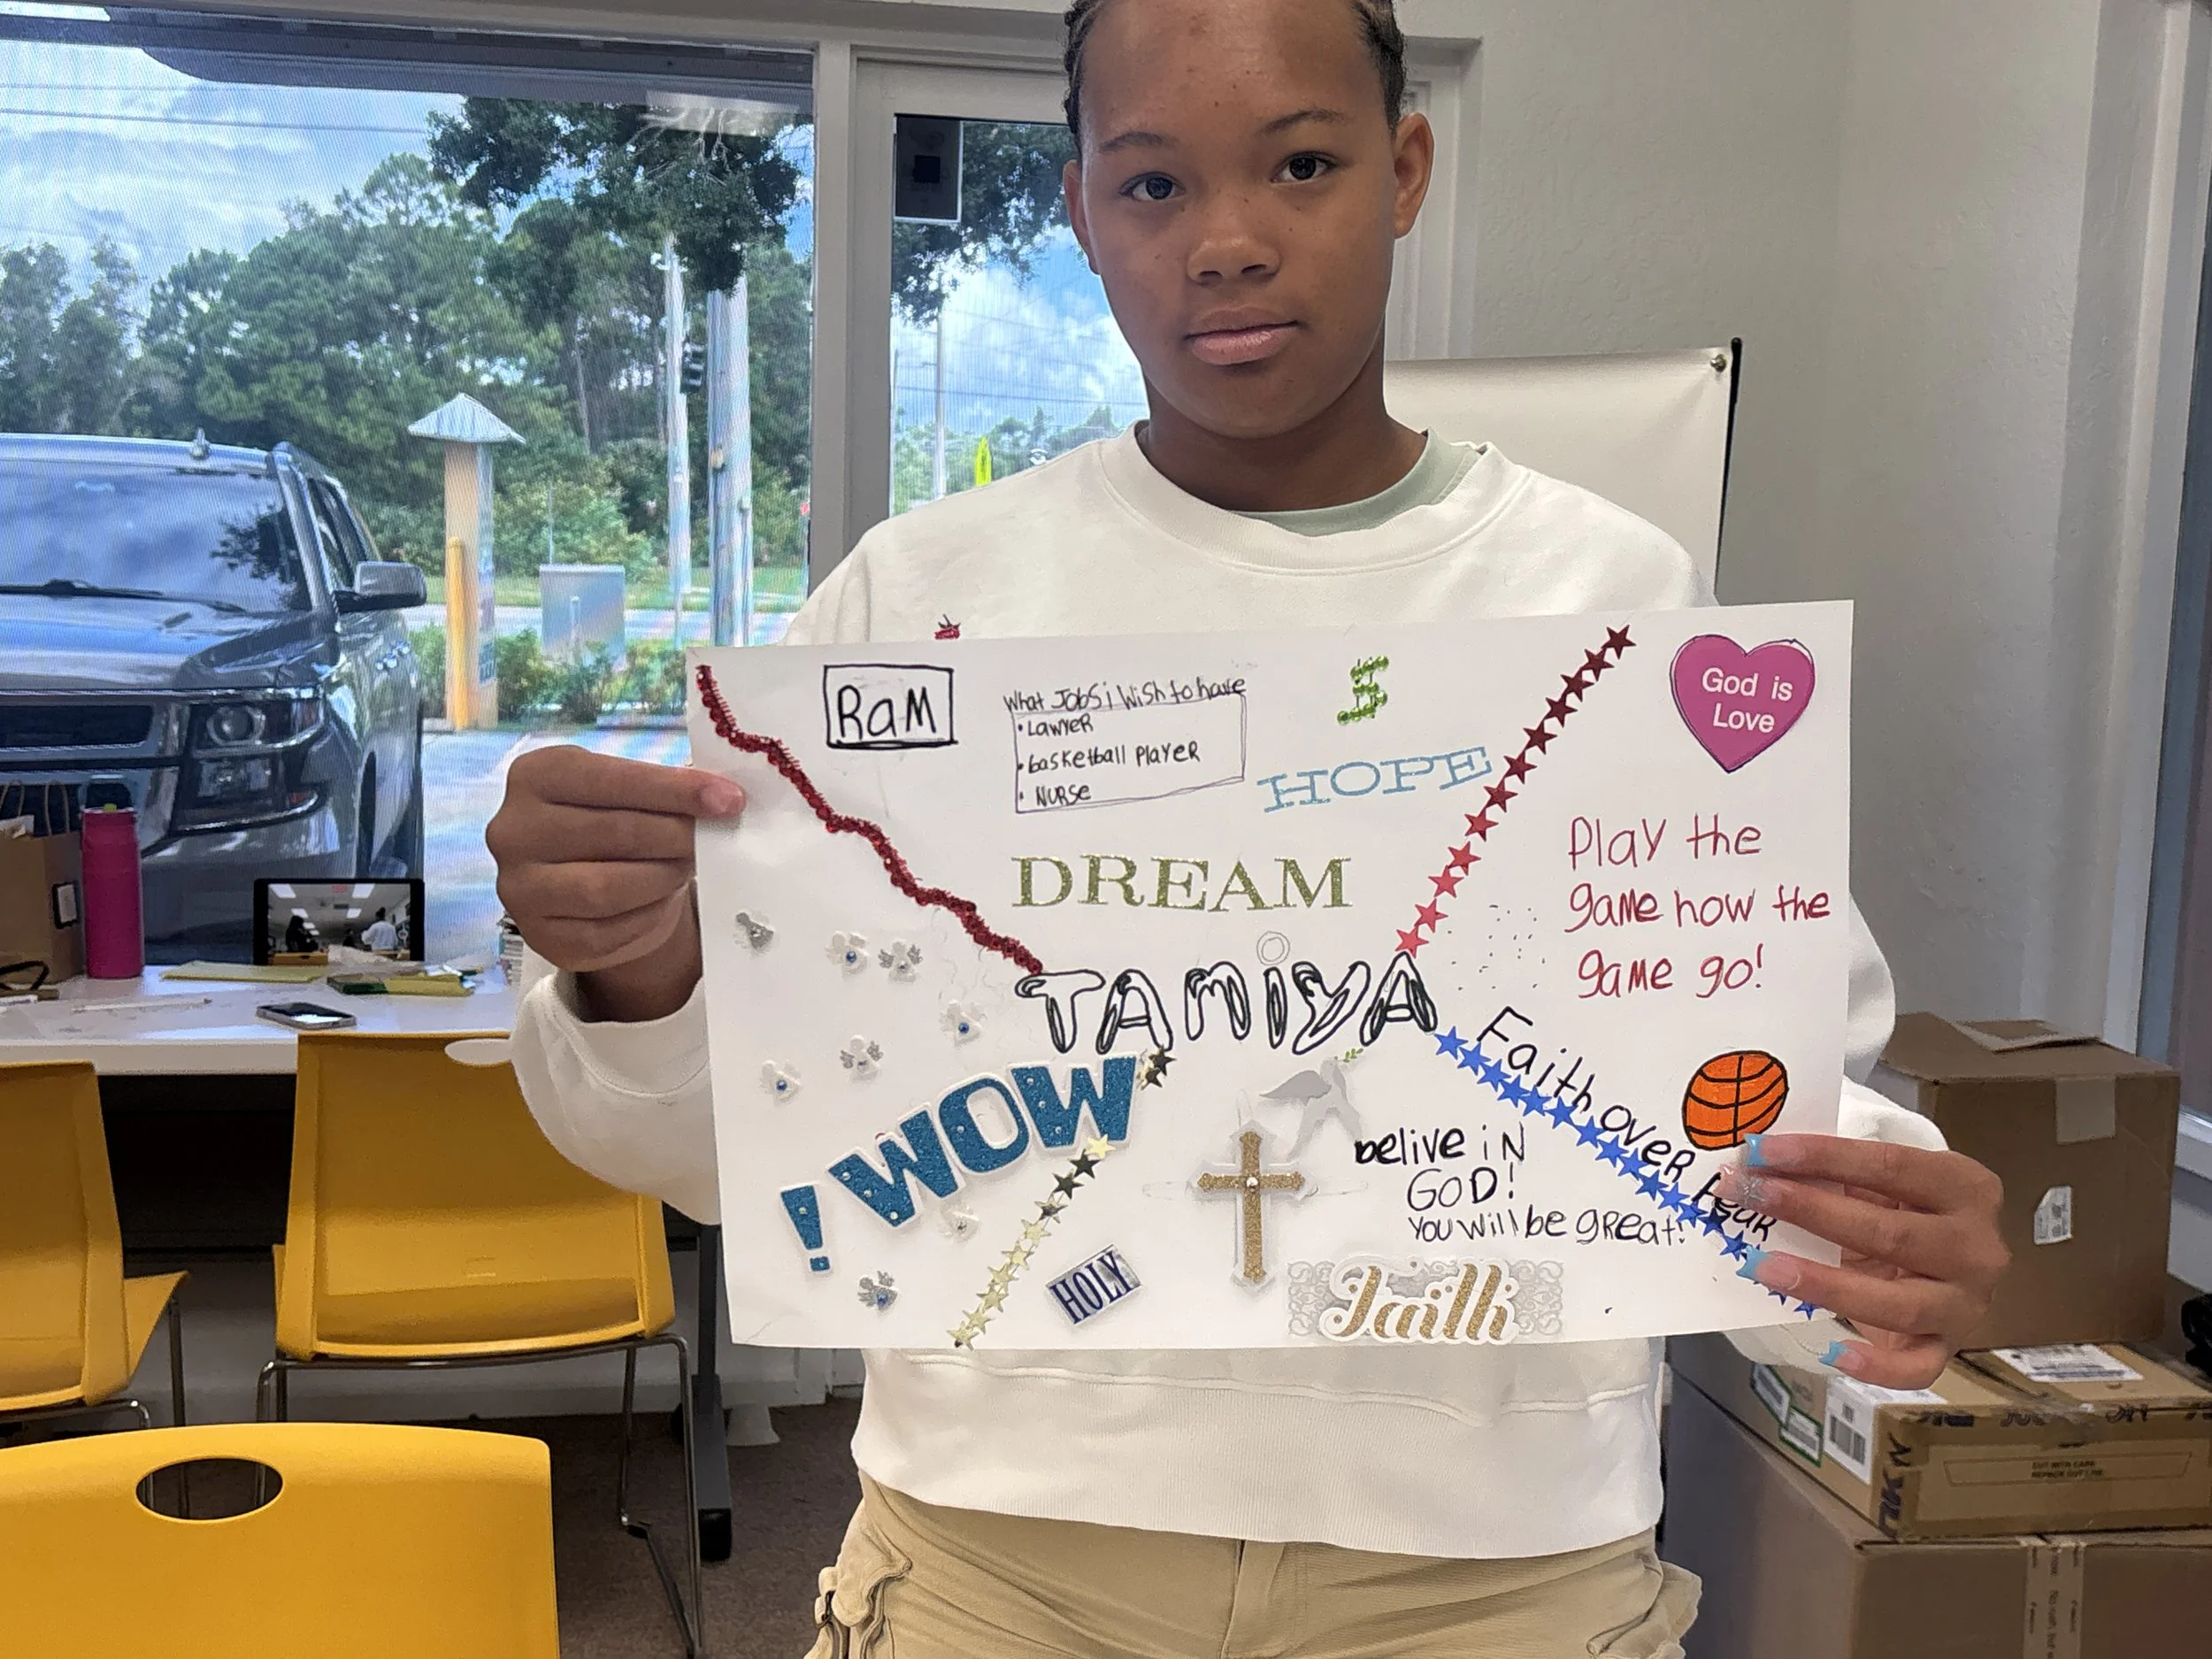 RaM
What Jobs i Wish to have
• Lawyer
• basketball Player
• Nurse
$
HOPE
God is
Love
DREAM
Play the
game how the
game go!
TAMiYA
Faith over Fear
! WOW
belive iN
GOD!
You will be great!
HOLY
Faith